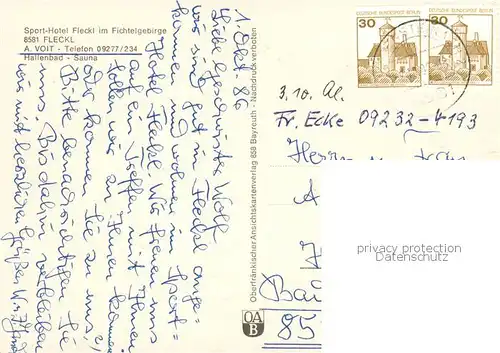 Sport-Hotel Fleckl im Fichtelgebirge
8581 FLECKL
A. VOIT - Telefon 09277/234
Hallenbad - Sauna
1. Okt. 86
Liebe Geschwister Wolf
wir sind gut in Fleckl ange-
kommen und wohnen im Sport=
Hotel Fleckl. Wir freuen uns
auf ein Treffen mit Ihnen
sollen wir zu Ihnen kommen
oder kommen Sie zu uns?
Bitte benachrichtigen Sie
uns. Bis dahin verbleiben
wir mit herzlichen
Grüßen
Oberfränkischer Ansichtskartenverlag 858 Bayreuth - Nachdruck verboten
OA
B
30
DEUTSCHE BUNDESPOST BERLIN
30
DEUTSCHE BUNDESPOST BERLIN
3.10. Al.
Fr. Ecke 09232-4193
Herrn
Bau
85
privacy protection
Datenschutz